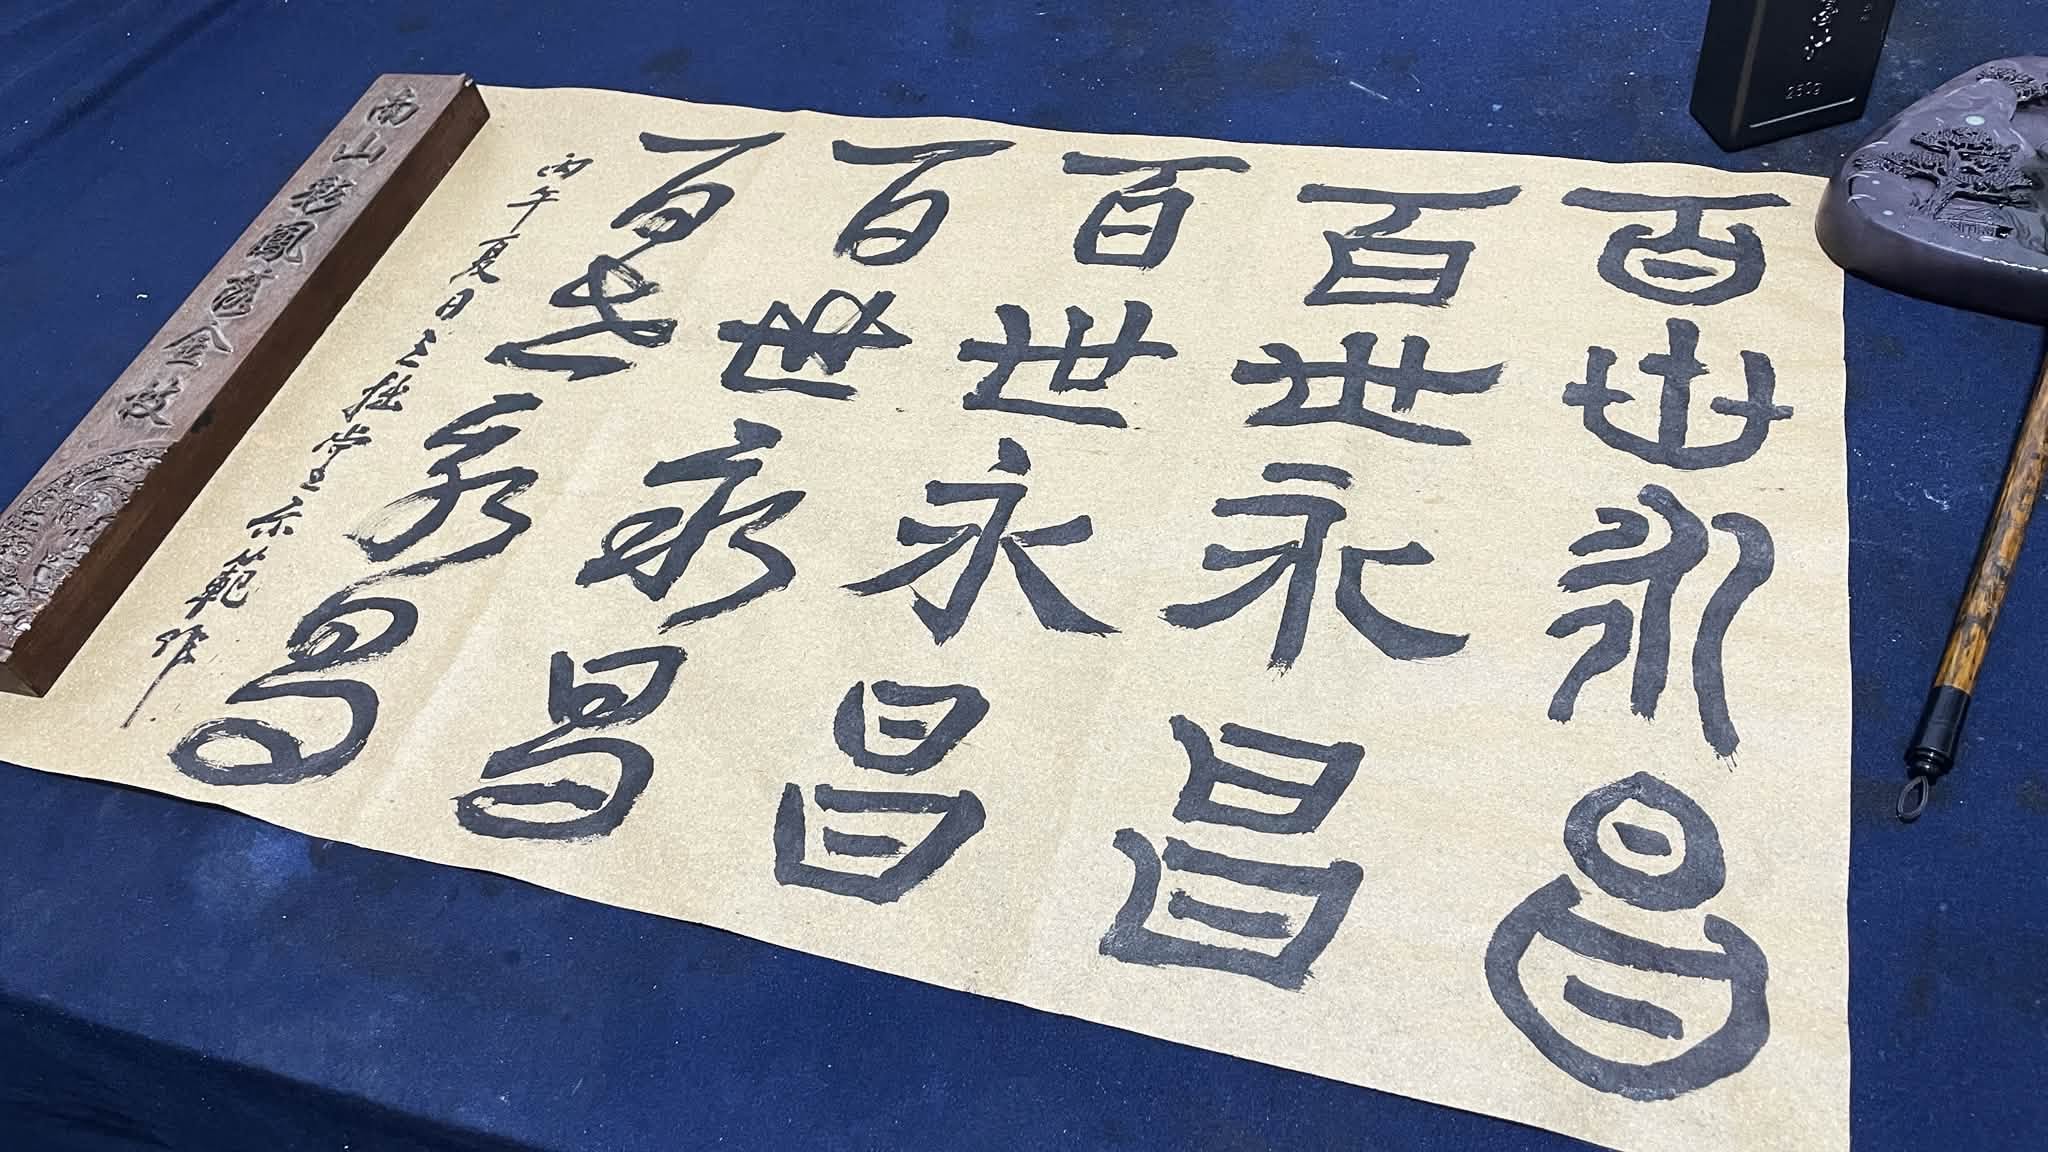 百世永昌
百世永昌
百世永昌
百世永昌
百世永昌
丙午夏日三拙堂主示範作
南山彩鳳
金枝
250g